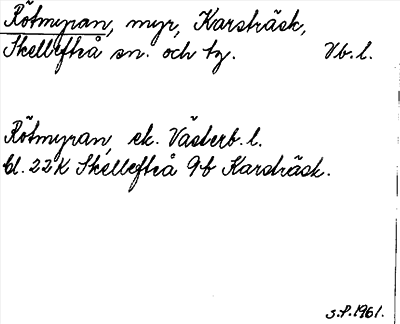 Rötmyran, myr, Karsträsk,
Skellefteå sn. och tg. Vb. l.
Rötmyran, ek. Västerb. l.
bl. 22K Skellefteå 9b Karsträsk.
S.P. 1961.